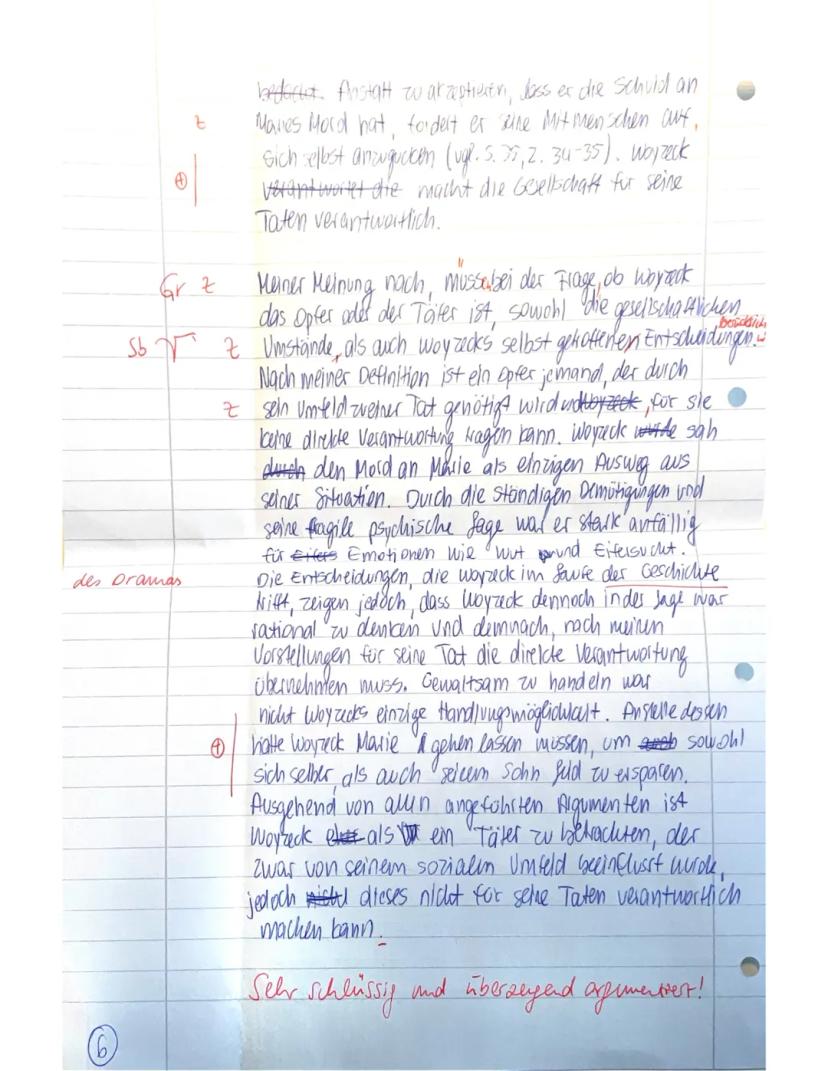 bedacht. Anstatt zu akzeptieren, dass er die Schuld an
z Maries Mord hat, fordert er seine Mitmenschen auf,
sich selbst anzugucken (vgl. S. 35, Z. 34-35). Woyzeck
⊕ verantwortet die macht die Gesellschaft für seine
Taten verantwortlich.
Gr z Meiner Meinung nach, müssen bei der Frage, ob Woyzeck
das Opfer oder der Täter ist, sowohl die gesellschaftlichen
Sb √ z Umstände, als auch Woyzecks selbst getroffenen Entscheidungen.
Nach meiner Definition ist ein Opfer jemand, der durch
z sein Umfeld zu einer Tat genötigt wird und Woyzeck, für sie
keine direkte Verantwortung tragen kann. Woyzeck wurde sah
durch den Mord an Marie als einzigen Ausweg aus
seiner Situation. Durch die ständigen Demütigungen und
seine fragile psychische Lage war er stark anfällig
für Eifers Emotionen wie Wut und Eifersucht.
des Dramas Die Entscheidungen, die Woyzeck im Laufe der Geschichte
trifft, zeigen jedoch, dass Woyzeck dennoch in der Lage war
rational zu denken und demnach, nach meinen
Vorstellungen für seine Tat die direkte Verantwortung
übernehmen muss. Gewaltsam zu handeln war
nicht Woyzecks einzige Handlungsmöglichkeit. Anstelle dessen
⊕ hätte Woyzeck Marie gehen lassen müssen, um auch sowohl
sich selber, als auch seinem Sohn Leid zu ersparen.
Ausgehend von allen angeführten Argumenten ist
Woyzeck eher als ein Täter zu betrachten, der
zwar von seinem sozialen Umfeld beeinflusst wurde,
jedoch nicht dieses nicht für seine Taten verantwortlich
machen kann.
Sehr schlüssig und überzeugend argumentiert!
6